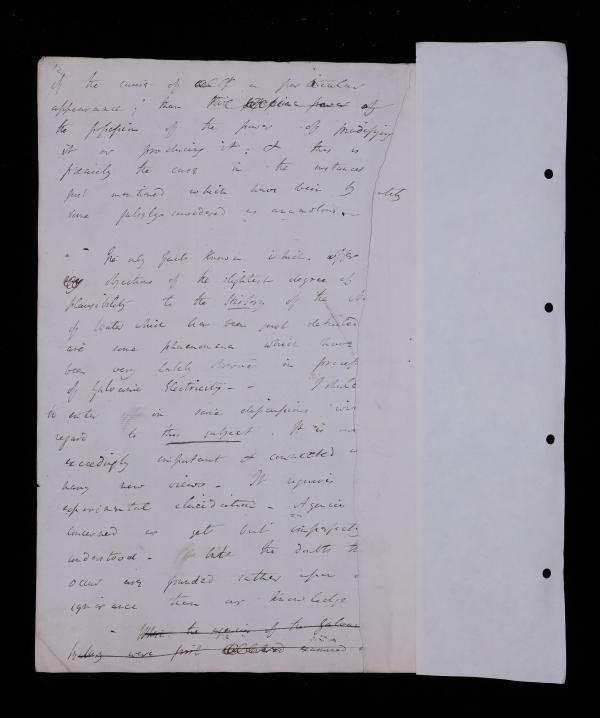 of the causes of a particular
appearance; than the power of
the possession of the power of modifying
it or producing it; & this is
precisely the case in the instances
just mentioned which have been by
some falsely considered as anomalous. -
The only facts known which offer
objections of the slightest degree of
plausibility to the theory of the
of Water which has been just detailed
are some phaenomena which have
been very lately observed in
of Galvanic Electricity - - I shall
to enter in some discussions
regard to this subject. It is
exceedingly important & connected
many new views - It requires
experimental elucidation - Agencies
concerned as yet but imperfectly
understood - the doubts
occur are founded rather upon
ignorance than or knowledge
When the agencies of the
were first